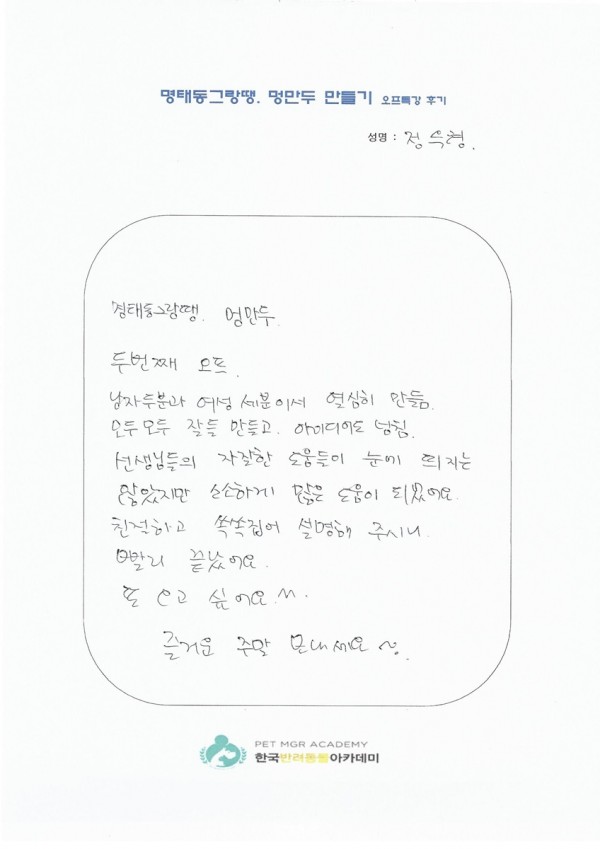 명태동그랑땡. 멍만두 만들기 오프특강 후기
성명 : 정수형.
명태동그랑땡. 멍만두.
두번째 오프.
남자두분과 여성 세분이서 열심히 만듦.
모두모두 잘들 만들고. 아이디어도 넘침.
선생님들의 자잘한 도움들이 눈에 띄지는
않았지만 소소하게 많은 도움이 되었어요.
친절하고 쏙쏙집어 설명해 주시니.
빨리 끝났어요.
또 오고 싶어요^^.
즐거운 주말 보내세요~.
PET MGR ACADEMY
한국반려동물아카데미